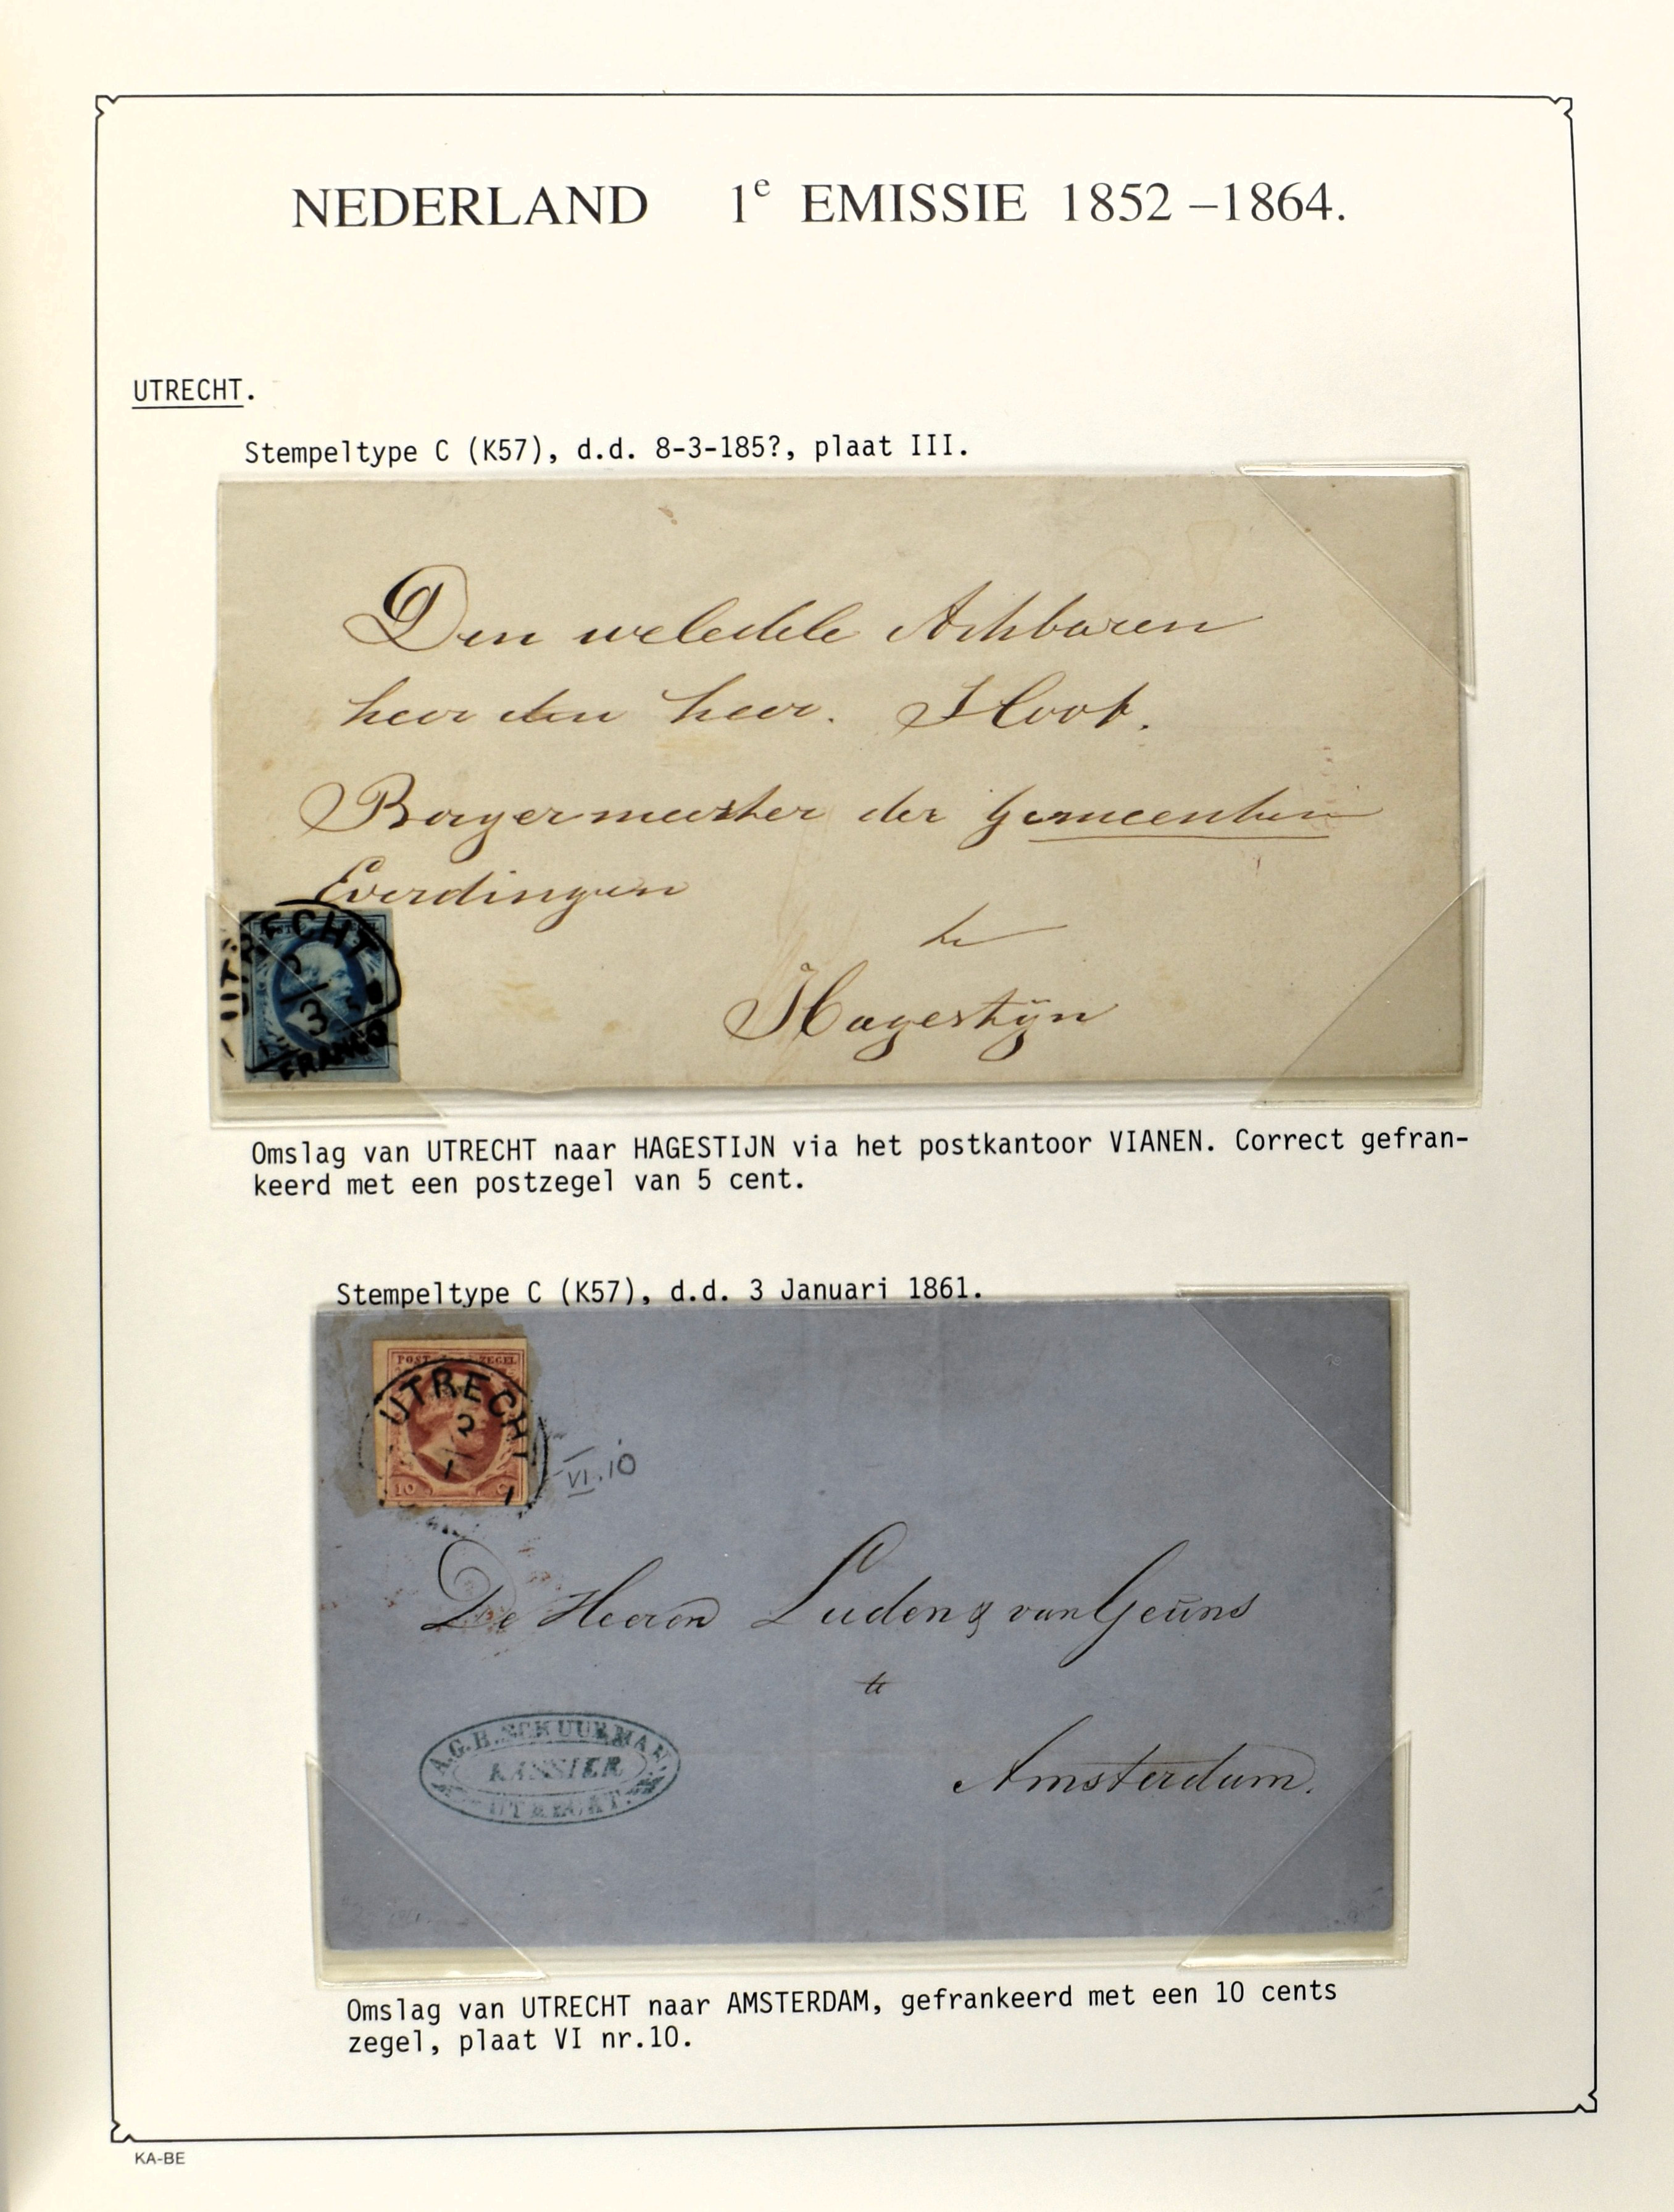 NEDERLAND 1e EMISSIE 1852–1864.
UTRECHT.
Stempeltype C (K57), d.d. 8-3-185?, plaat III.
Den weledele Achbaren
heer den heer. Hoof.
Borgermeester der gemeenten
Everdingen
te
Hagestijn
UTRECHT
3
FRANCO
Omslag van UTRECHT naar HAGESTIJN via het postkantoor VIANEN. Correct gefran-
keerd met een postzegel van 5 cent.
Stempeltype C (K57), d.d. 3 Januari 1861.
POST ZEGEL
UTRECHT
1
10 C
VI.10
De Heeren Luden & van Geuns
te
Amsterdam.
A.G.H. SCHUURMAN
KASSIER
UTRECHT.
Omslag van UTRECHT naar AMSTERDAM, gefrankeerd met een 10 cents
zegel, plaat VI nr.10.
KA-BE